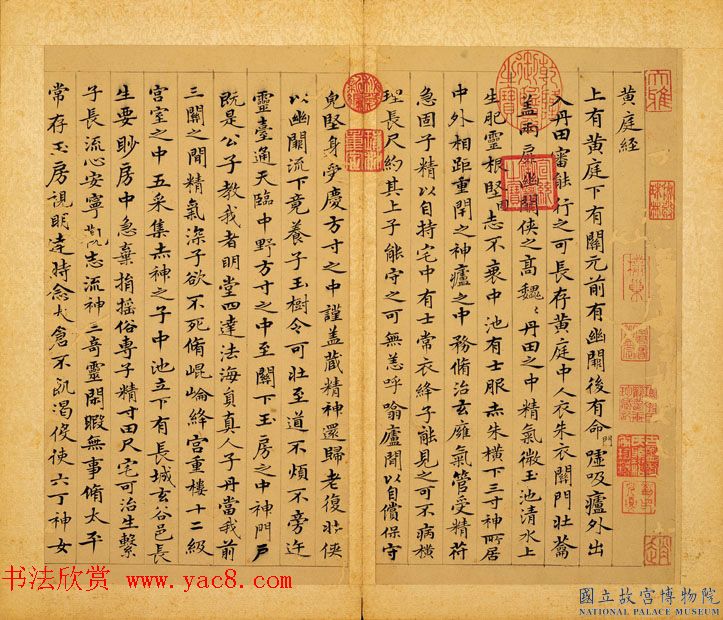 黄庭経
上有黄庭下有關元前有幽闕後有命門嘘吸廬外出
入丹田審能行之可長存黄庭中人衣朱衣關門壯蘥
盖兩扉幽闕侠之髙魏〻丹田之中精氣微玉池清水上
生肥靈根堅固志不衰中池有士服赤朱横下三寸神所居
中外相距重閉之神廬之中務脩治玄廱氣管受精符
急固子精以自持宅中有士常衣絳子能見之可不病横
理長尺約其上子能守之可無恙呼噏廬間以自償保守
皃堅身受慶方寸之中謹盖蔵精神還歸老復壯侠
以幽闕流下竟養子玉樹令可壯至道不煩不旁迕
靈臺通天臨中野方寸之中至關下玉房之中神門户
既是公子教我者明堂四達法海負真人子丹當我前
三關之間精氣深子欲不死脩崐崘絳宫重樓十二級
宫室之中五采集赤神之子中池立下有長城玄谷邑長
生要眇房中急棄捐揺俗専子精寸田尺宅可治生繋
子長流心安寧觀志流神三奇靈閑暇無事脩太平
常存玉房視明達時念大倉不飢渇役使六丁神女
乾隆御覽之寶
书法欣赏 www.yac8.com
國立故宮博物院
NATIONAL PALACE MUSEUM